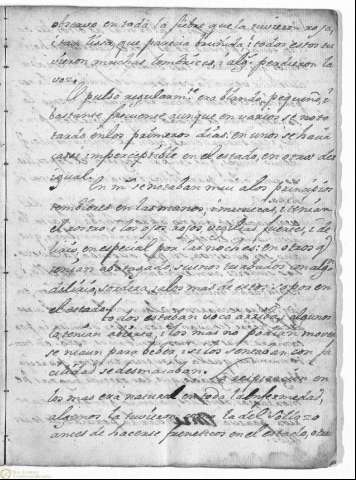 obscura en toda la fiebre que la tuvieron roja,
i tan lista, que parecia bruñida: i todos estos tu
vieron muchas lombrices, i alg.s perdieron la
voz.
El pulso regularm.te era blando, pequeño, i
bastante frecuente aunque en varios se noto
tardo en los primeros dias: en unos se hacia
casi imperceptible en el estado, en otros des
igual.
En m.s se notaban mui a los principios
temblores en las manos, i tenian
el rostro i los ojos rojos, vigilias fuertes, i de
lirio en especial por las noches: en otros q.e
tenian abotagado, sueños turbados con alg.n
delirio, i a los mas de estos sopor en
el estado.
Todos estaban boca arriba, algunos
la tenian abierta, i los mas no podian mover
se ni aun para beber: si los sentaban con fa
cilidad se desmayaban.
La respiracion en
los mas era natural en toda la enfermedad,
algunos la tuvieron
antes de hacerse freneticos en el estado, otros